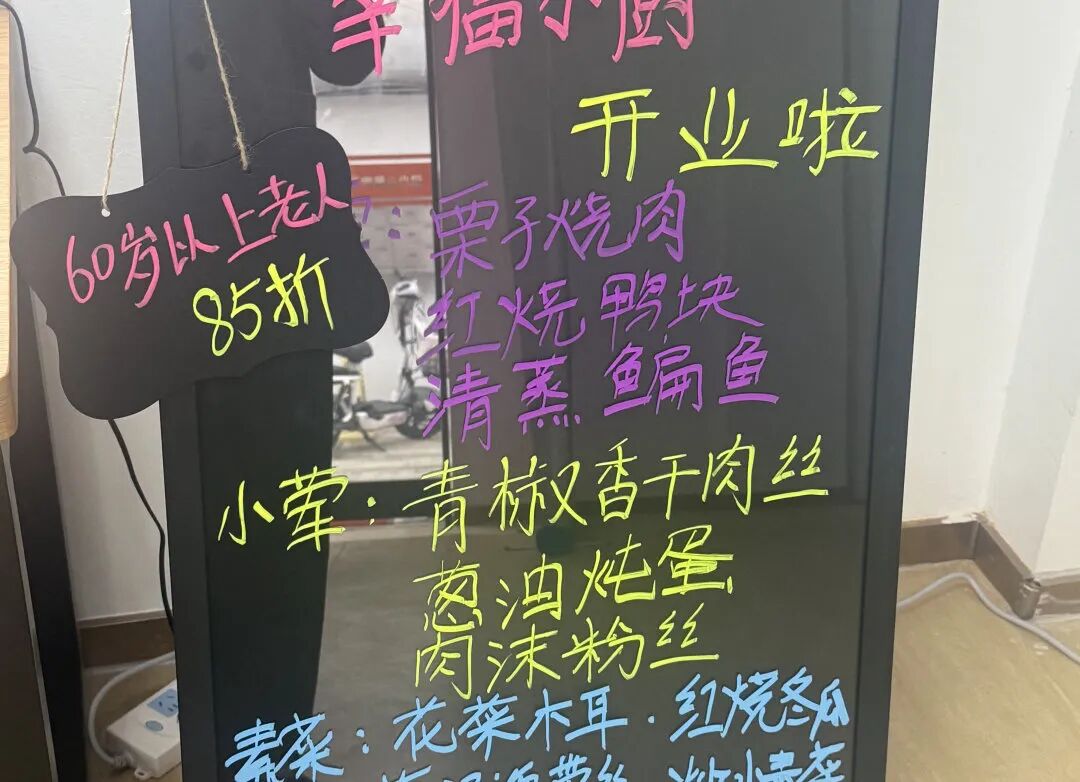 幸福小厨
开业啦
60岁以上老人
85折
:栗子烧肉
红烧鸭块
清蒸鳊鱼
小荤:青椒香干肉丝
葱油炖蛋
肉沫粉丝
素菜:花菜木耳.红烧冬瓜